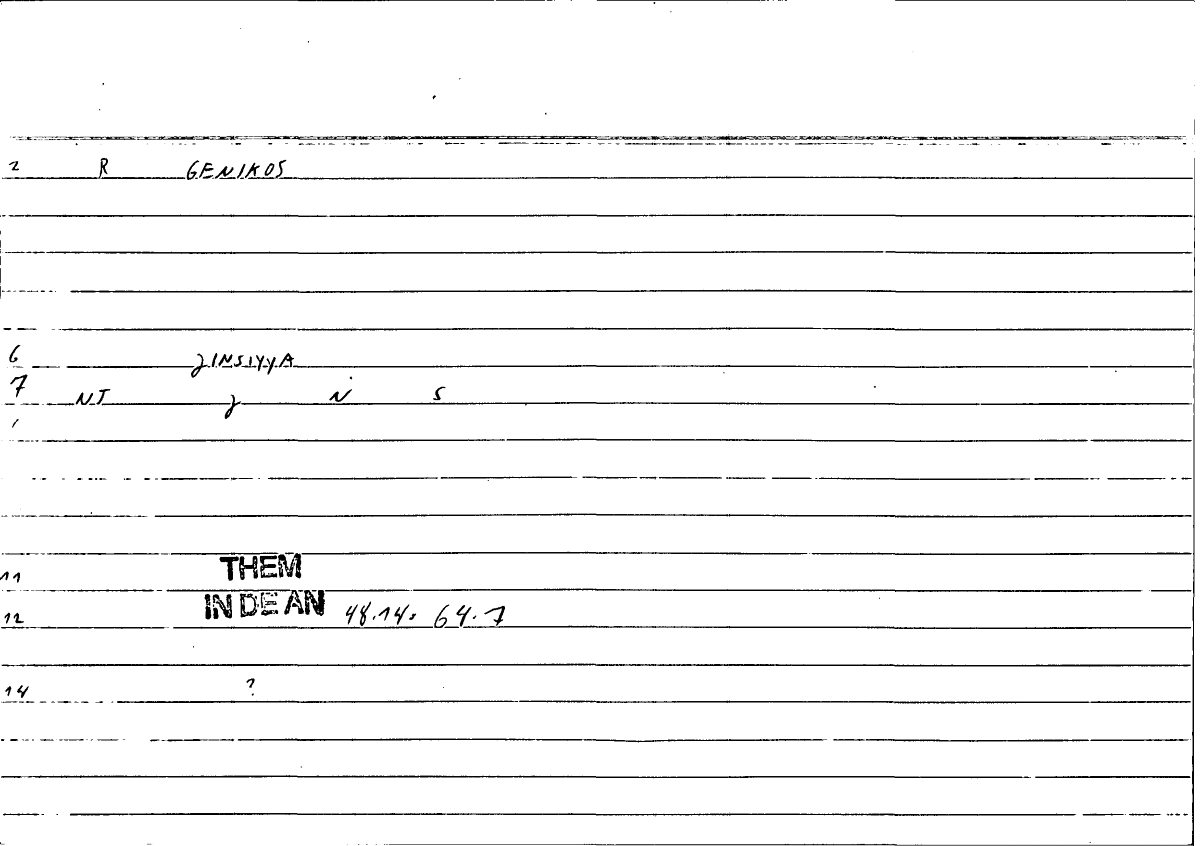 2 R GENIKOS
6 ʒINSIYYA
7 NT ʒ N S
11 THEM
12 IN DE AN 48.14; 64.7
14 ?